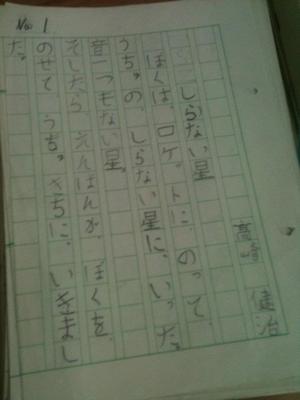 No 1
高崎 健治
しらない星
ぼくは、ロケットに、のって、
うちゅの、しらない星に、いった。
音一つもない星。
そしたら、えんばんが、ぼくを、
のせて、うちゅきちに、いきまし
た。